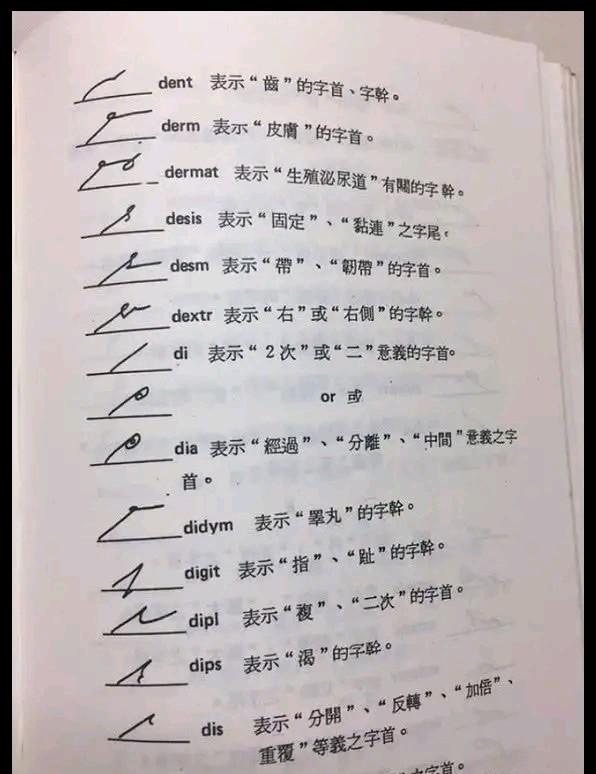 dent 表示“齒”的字首、字幹。
derm 表示“皮膚”的字首。
dermat 表示“生殖泌尿道”有關的字幹。
desis 表示“固定”、“黏連”之字尾。
desm 表示“帶”、“韌帶”的字首。
dextr 表示“右”或“右側”的字幹。
di 表示“2次”或“二”意義的字首。
or 或
dia 表示“經過”、“分離”、“中間”意義之字
首。
didym 表示“睪丸”的字幹。
digit 表示“指”、“趾”的字幹。
dipl 表示“複”、“二次”的字首。
dips 表示“渴”的字幹。
dis 表示“分開”、“反轉”、“加倍”、
重覆”等義之字首。
之字首。